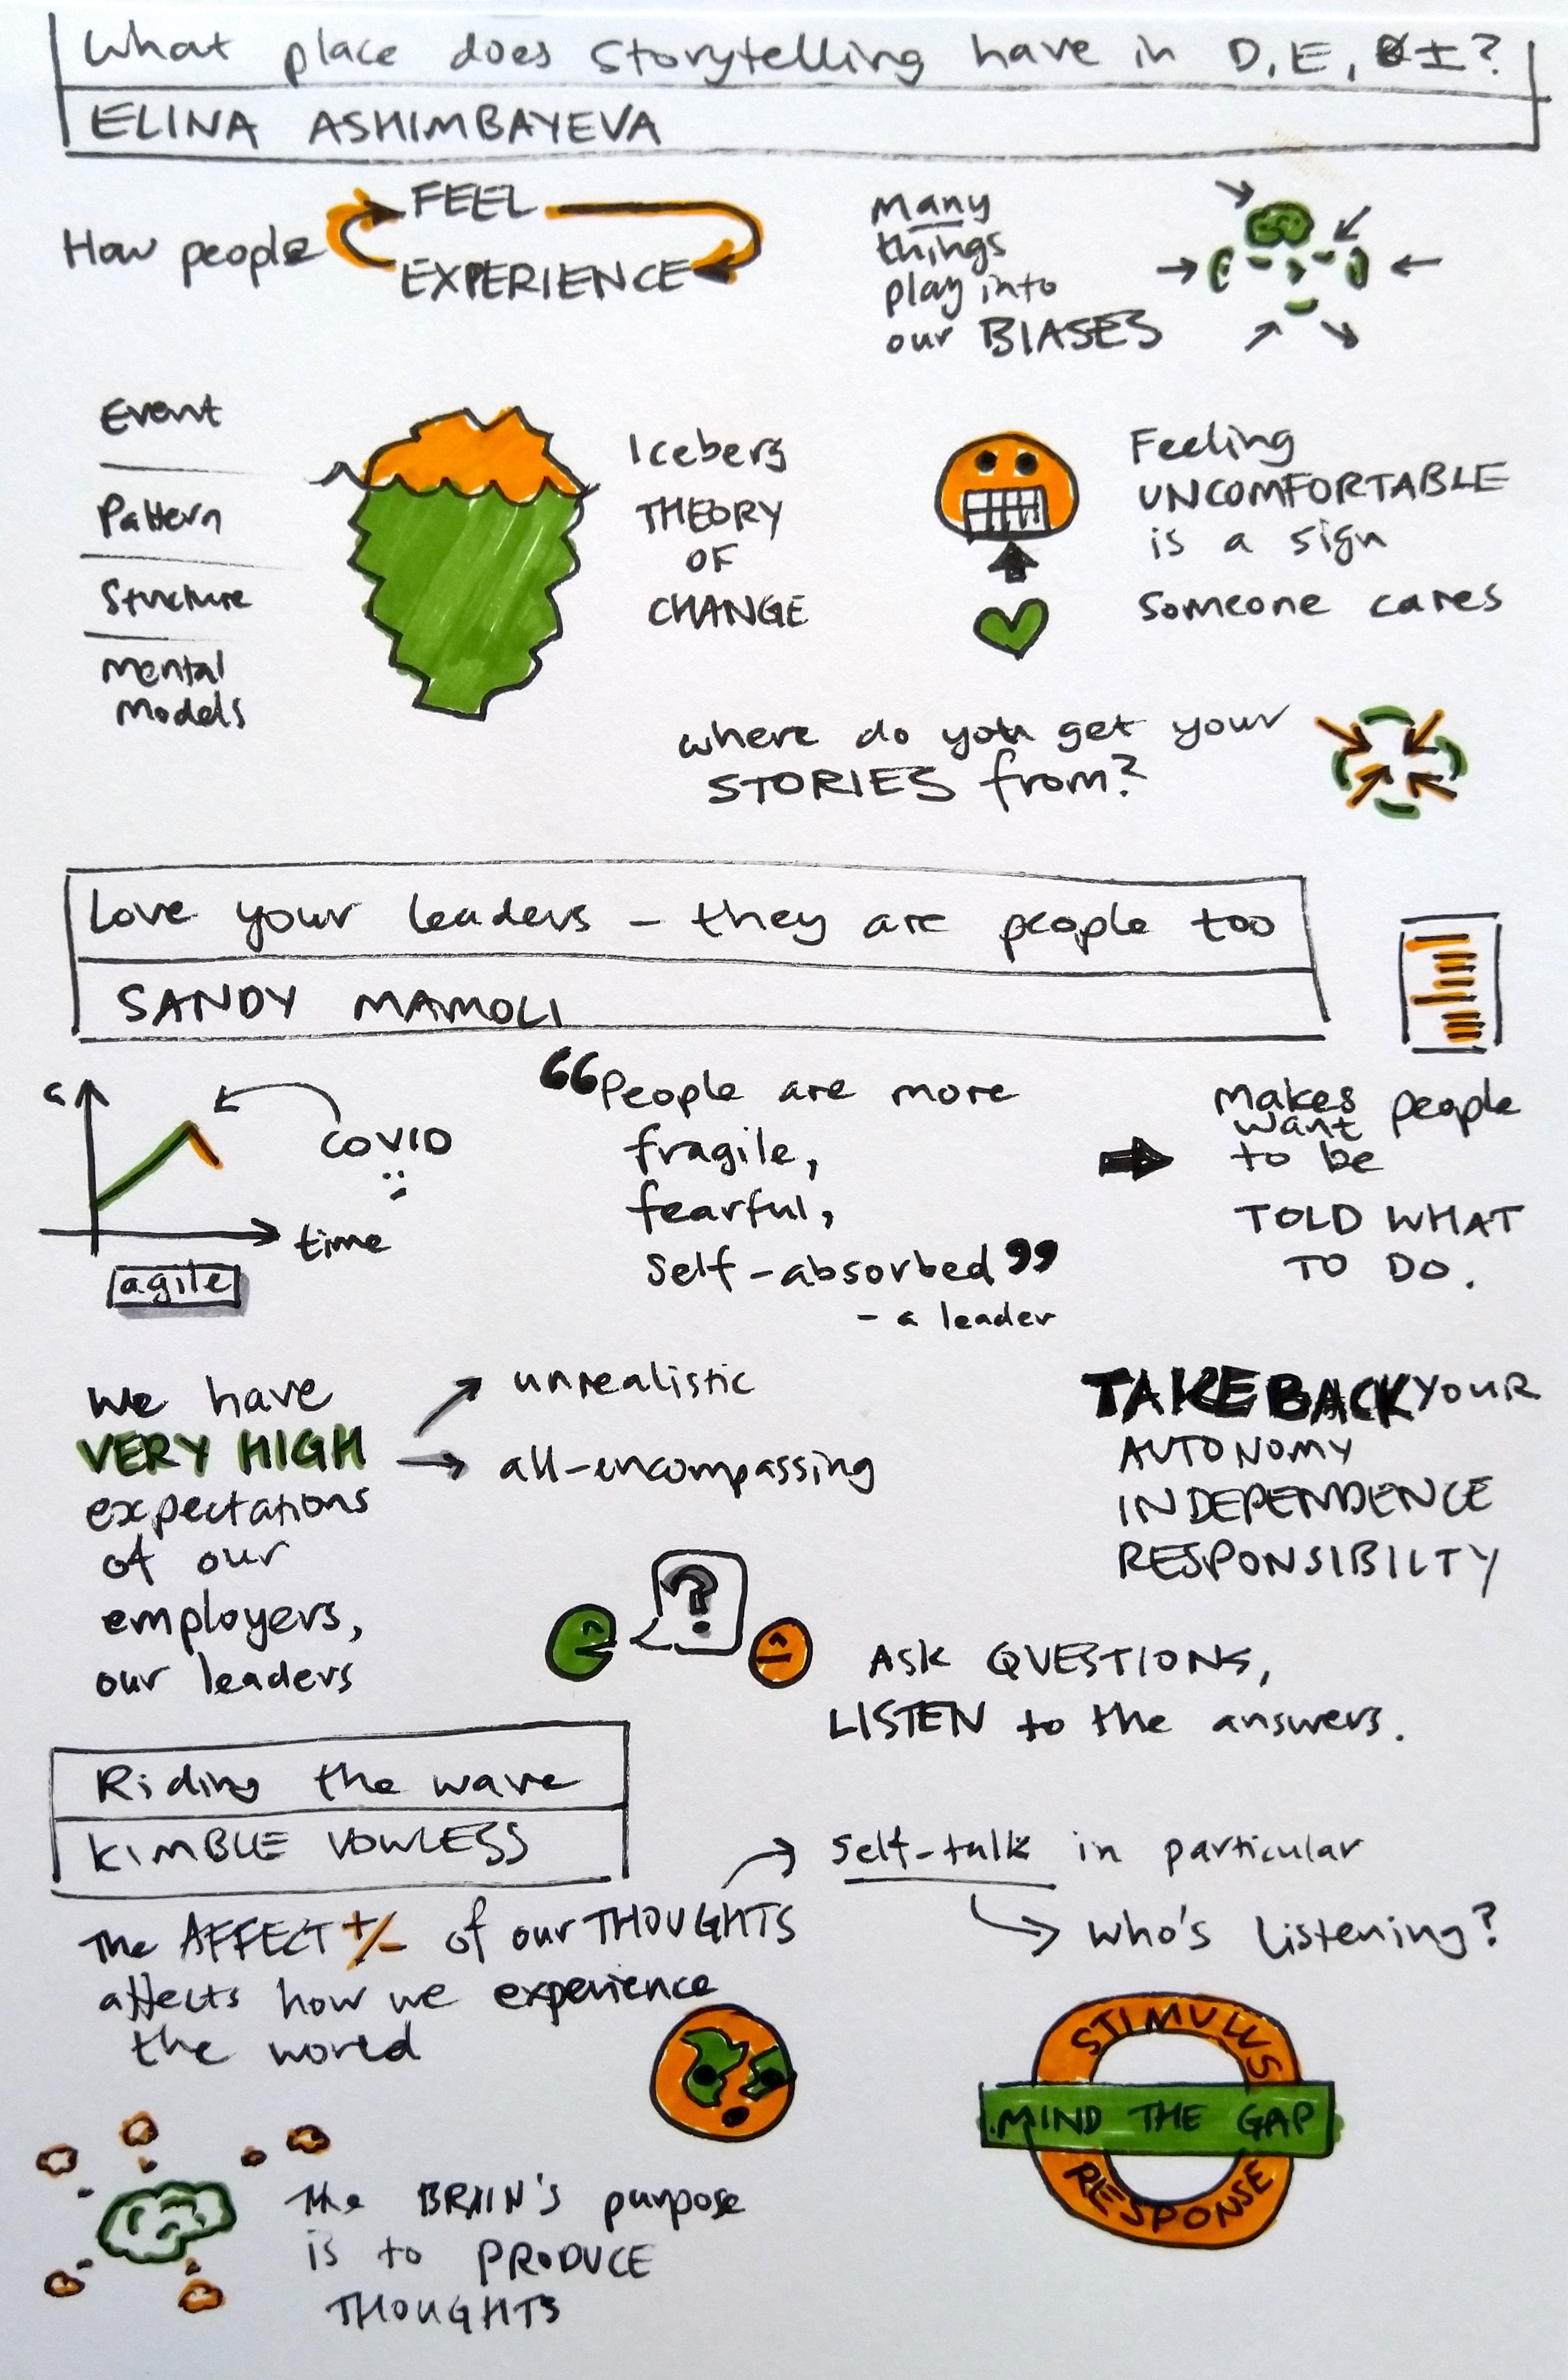 What place does Storytelling have in D, E, & I?
ELINA ASHIMBAYEVA
How people
FEEL
EXPERIENCE
Many
things
play into
our BIASES
Event
Pattern
Structure
Mental
Models
Iceberg
THEORY
OF
CHANGE
Feeling
UNCOMFORTABLE
is a sign
Someone cares
where do you get your
STORIES from?
Love your leaders - they are people too
SANDY MAMOLI
COVID
time
agile
"People are more
fragile,
fearful,
Self-absorbed"
- a leader
Makes people
want
to be
TOLD WHAT
TO DO.
We have
VERY HIGH
expectations
of our
employers,
our leaders
unrealistic
all-encompassing
TAKE BACK YOUR
AUTONOMY
INDEPENDENCE
RESPONSIBILTY
?
ASK QUESTIONS,
LISTEN to the answers.
Riding the wave
KIMBLE VOWLESS
The AFFECT +/- of our THOUGHTS
affects how we experience
the world
self-talk in particular
who's listening?
STIMULUS
MIND THE GAP
RESPONSE
The BRAIN'S purpose
is to PRODUCE
THOUGHTS